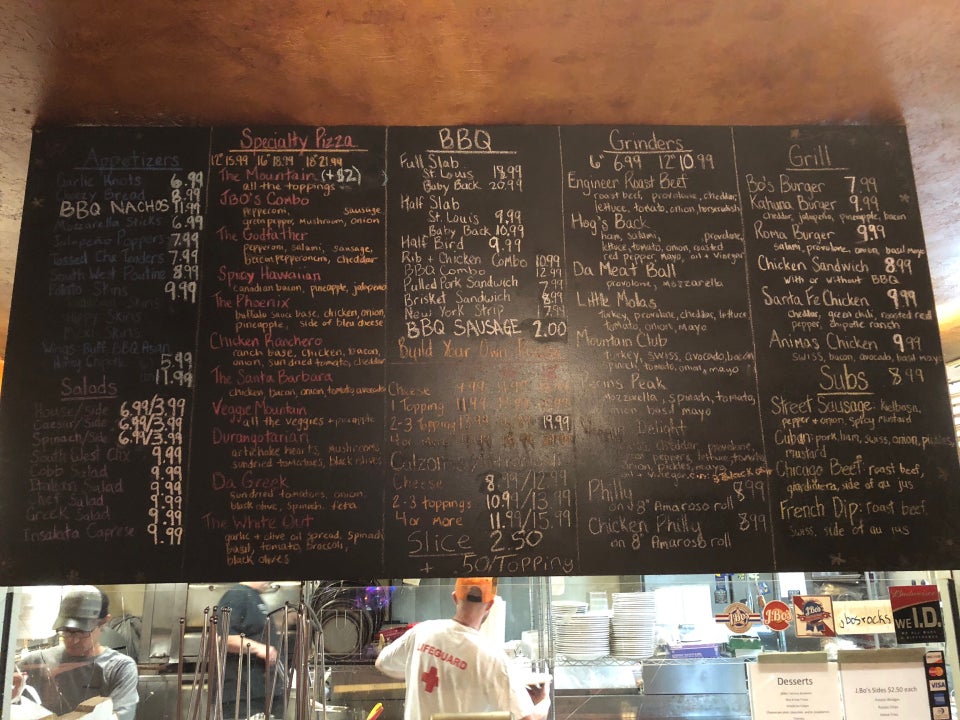 Appetizers
Garlic Knots 6.99
Bread 8.99
BBQ NACHOS 11.99
Mozzarella Sticks 6.99
Jalapeño Poppers 7.99
Tossed Chx Tenders 7.99
South West Poutine 8.99
Potato Skins 9.99
Hippy Skins
Mexi Skins
Wings-Buff BBQ Asian
5.99
11.99
Salads
House/side 6.99/3.99
Caesar/Side 6.99/3.99
Spinach/Side 6.99/3.99
South West Chx 9.99
Cobb Salad 9.99
Italian Salad 9.99
Chef Salad 9.99
Greek Salad 9.99
Insalata Caprese 9.99
Specialty Pizza
12" 15.99 16" 18.99 18" 21.99
The Mountain (+$2)
all the toppings
JBO's Combo
pepperoni, sausage,
green pepper, mushroom, onion
The Godfather
pepperoni, salami, sausage,
bacon, pepperoncini, cheddar
Spicy Hawaiian
canadian bacon, pineapple, jalapeno
The Phoenix
buffalo sauce base, chicken, onion,
pineapple, side of bleu cheese
Chicken Ranchero
ranch base, chicken, bacon,
onion, sundried tomato, cheddar
The Santa Barbara
chicken, bacon, onion, tomato, avocado
Veggie Mountain
all the veggies + pineapple
Durangotarian
artichoke hearts, mushrooms,
sundried tomatoes, black olives
Da Greek
sundried tomatoes, onion,
black olive, spinach, feta
The White Out
garlic + olive oil spread, spinach
basil, tomato, broccoli,
black olives
BBQ
Full Slab
St. Louis 18.99
Baby Back 20.99
Half Slab
St. Louis 9.99
Baby Back 10.99
Half Bird 9.99
Rib + Chicken Combo 10.99
BBQ Combo 12.99
Pulled Pork Sandwich 7.99
Brisket Sandwich 8.99
New York Strip 17.99
BBQ SAUSAGE 2.00
Build Your Own
Cheese
1 Topping
2-3 Topping 19.99
4 or more
Cheese 8.99/12.99
2-3 toppings 10.99/13.99
4 or more 11.99/15.99
Slice 2.50
+ .50/Topping
Grinders
6" 6.99 12" 10.99
Engineer Roast Beef
roast beef, provolone, cheddar,
lettuce, tomato, onion, horseradish
Hog's Back
ham, salami, provolone,
lettuce, tomato, onion, roasted
red pepper, mayo, oil + vinegar
Da Meat Ball
provolone, mozzarella
Little Molas
turkey, provolone, cheddar, lettuce
tomato, onion, mayo
Mountain Club
turkey, swiss, avocado, bacon
spinach, tomato, onion, mayo
Peak
mozzarella, spinach, tomato,
onion, basil mayo
Delight
cheddar, provolone,
peppers, lettuce, tomato,
onion, pickles, mayo,
oil + vinegar
Philly 8.99
on 8" Amaroso roll
Chicken Philly 8.99
on 8" Amaroso roll
Grill
Bo's Burger 7.99
Kahuna Burger 9.99
cheddar, jalapeño, pineapple, bacon
Roma Burger 9.99
salami, provolone, onion, basil mayo
Chicken Sandwich 8.99
with or without BBQ
Santa Fe Chicken 9.99
cheddar, green chili, roasted red
pepper, chipotle ranch
Animas Chicken 9.99
swiss, bacon, avocado, basil mayo
Subs 8.99
Street Sausage: Kielbasa,
pepper + onion, spicy mustard
Cuban: pork, ham, swiss, onion, pickles,
mustard
Chicago Beef: roast beef,
giardiniera, side of au jus
French Dip: roast beef,
swiss, side of au jus
LIFEGUARD
J.Bo's
J.Bo's
jbosrocks
Budweiser
WE I.D.
VISA
Desserts
J.Bo's Sides $2.50 each